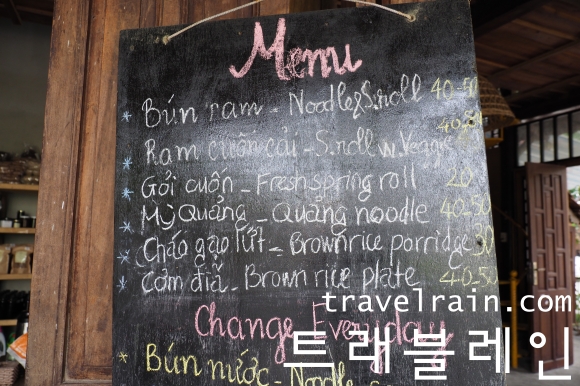 Menu
* Bún ram - Noodle & S.roll 40-50
* Ram cuốn cải - S.roll w. Veggie 40-50
* Gỏi cuốn - Fresh spring roll 20
* Mỳ Quảng - Quảng noodle 40-50
* Cháo gạo lứt - Brown rice porridge 30
* Cơm đĩa - Brown rice plate 40-50
travelrain.com
Change Everyday
트래블레인
* Bún nước - Noodle